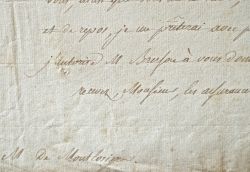 et de repos, je me prêterai avec p
j'autorise M Brisson à vous don
recevez, Monsieur, les assurance
M de Montlosier